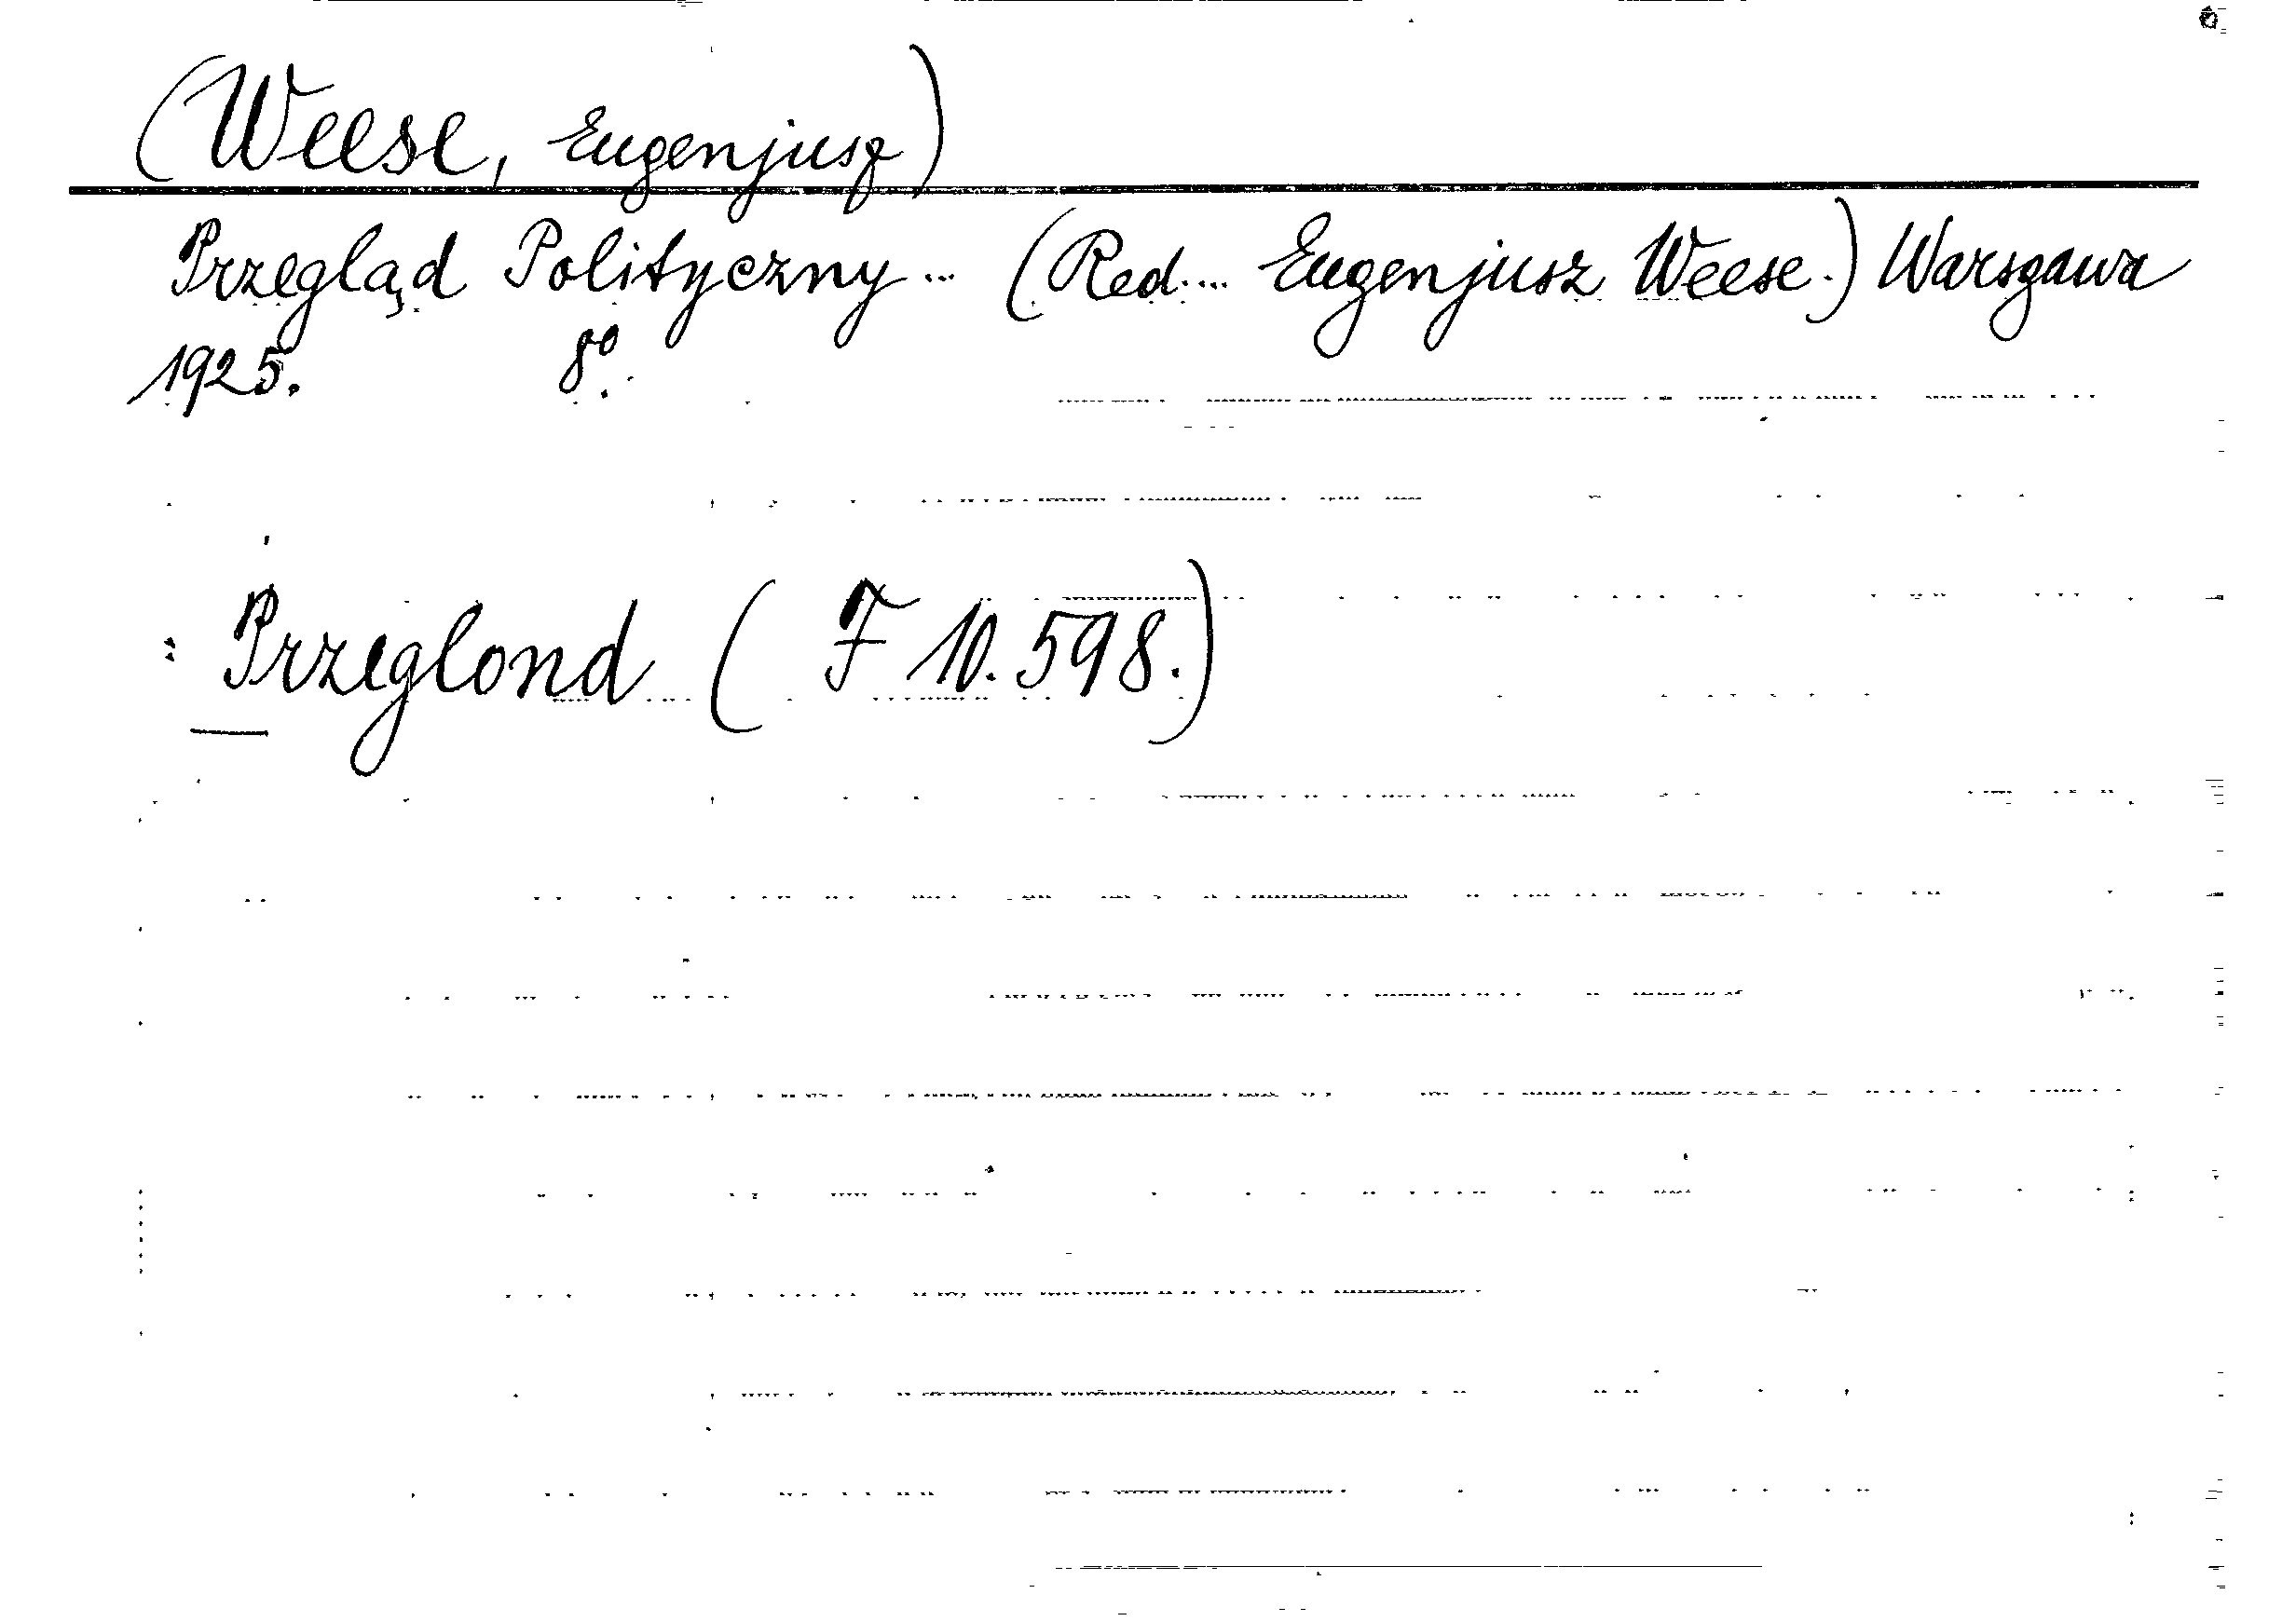 (Weese, Eugenjusz)
Przegląd Polityczny ... (Red. ... Eugenjusz Weese.) Warszawa
1925. 8°.
: Przeglond ( F 10.598.)